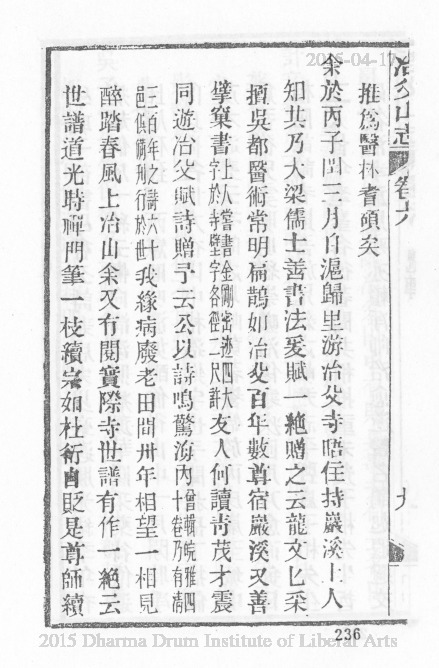 冶父山志 卷六 九
推爲醫林耆碩矣
余於丙子閏三月自滬歸里游冶父寺晤住持巖溪上人
知其乃大梁儒士善書法爰賦一絶贈之云龍文匕采
擅吳都醫術常明扁鵲如冶父百年數尊宿巖溪又善
擘窠書上人嘗書金剛密迹四大字於寺壁字各徑二尺許友人何讀青茂才震
同遊冶父賦詩贈予云公以詩鳴驚海內曾輯皖雅四十卷乃有清
三百年之詩六十邑俱備刊行於世我緣病廢老田閒卅年相望一相見
醉踏春風上冶山余又有閱實際寺世譜有作一絶云
世譜道光時禪門筆一枝續宗如杜衍自貶是尊師續
2015-04-17
236
2015 Dharma Drum Institute of Liberal Arts